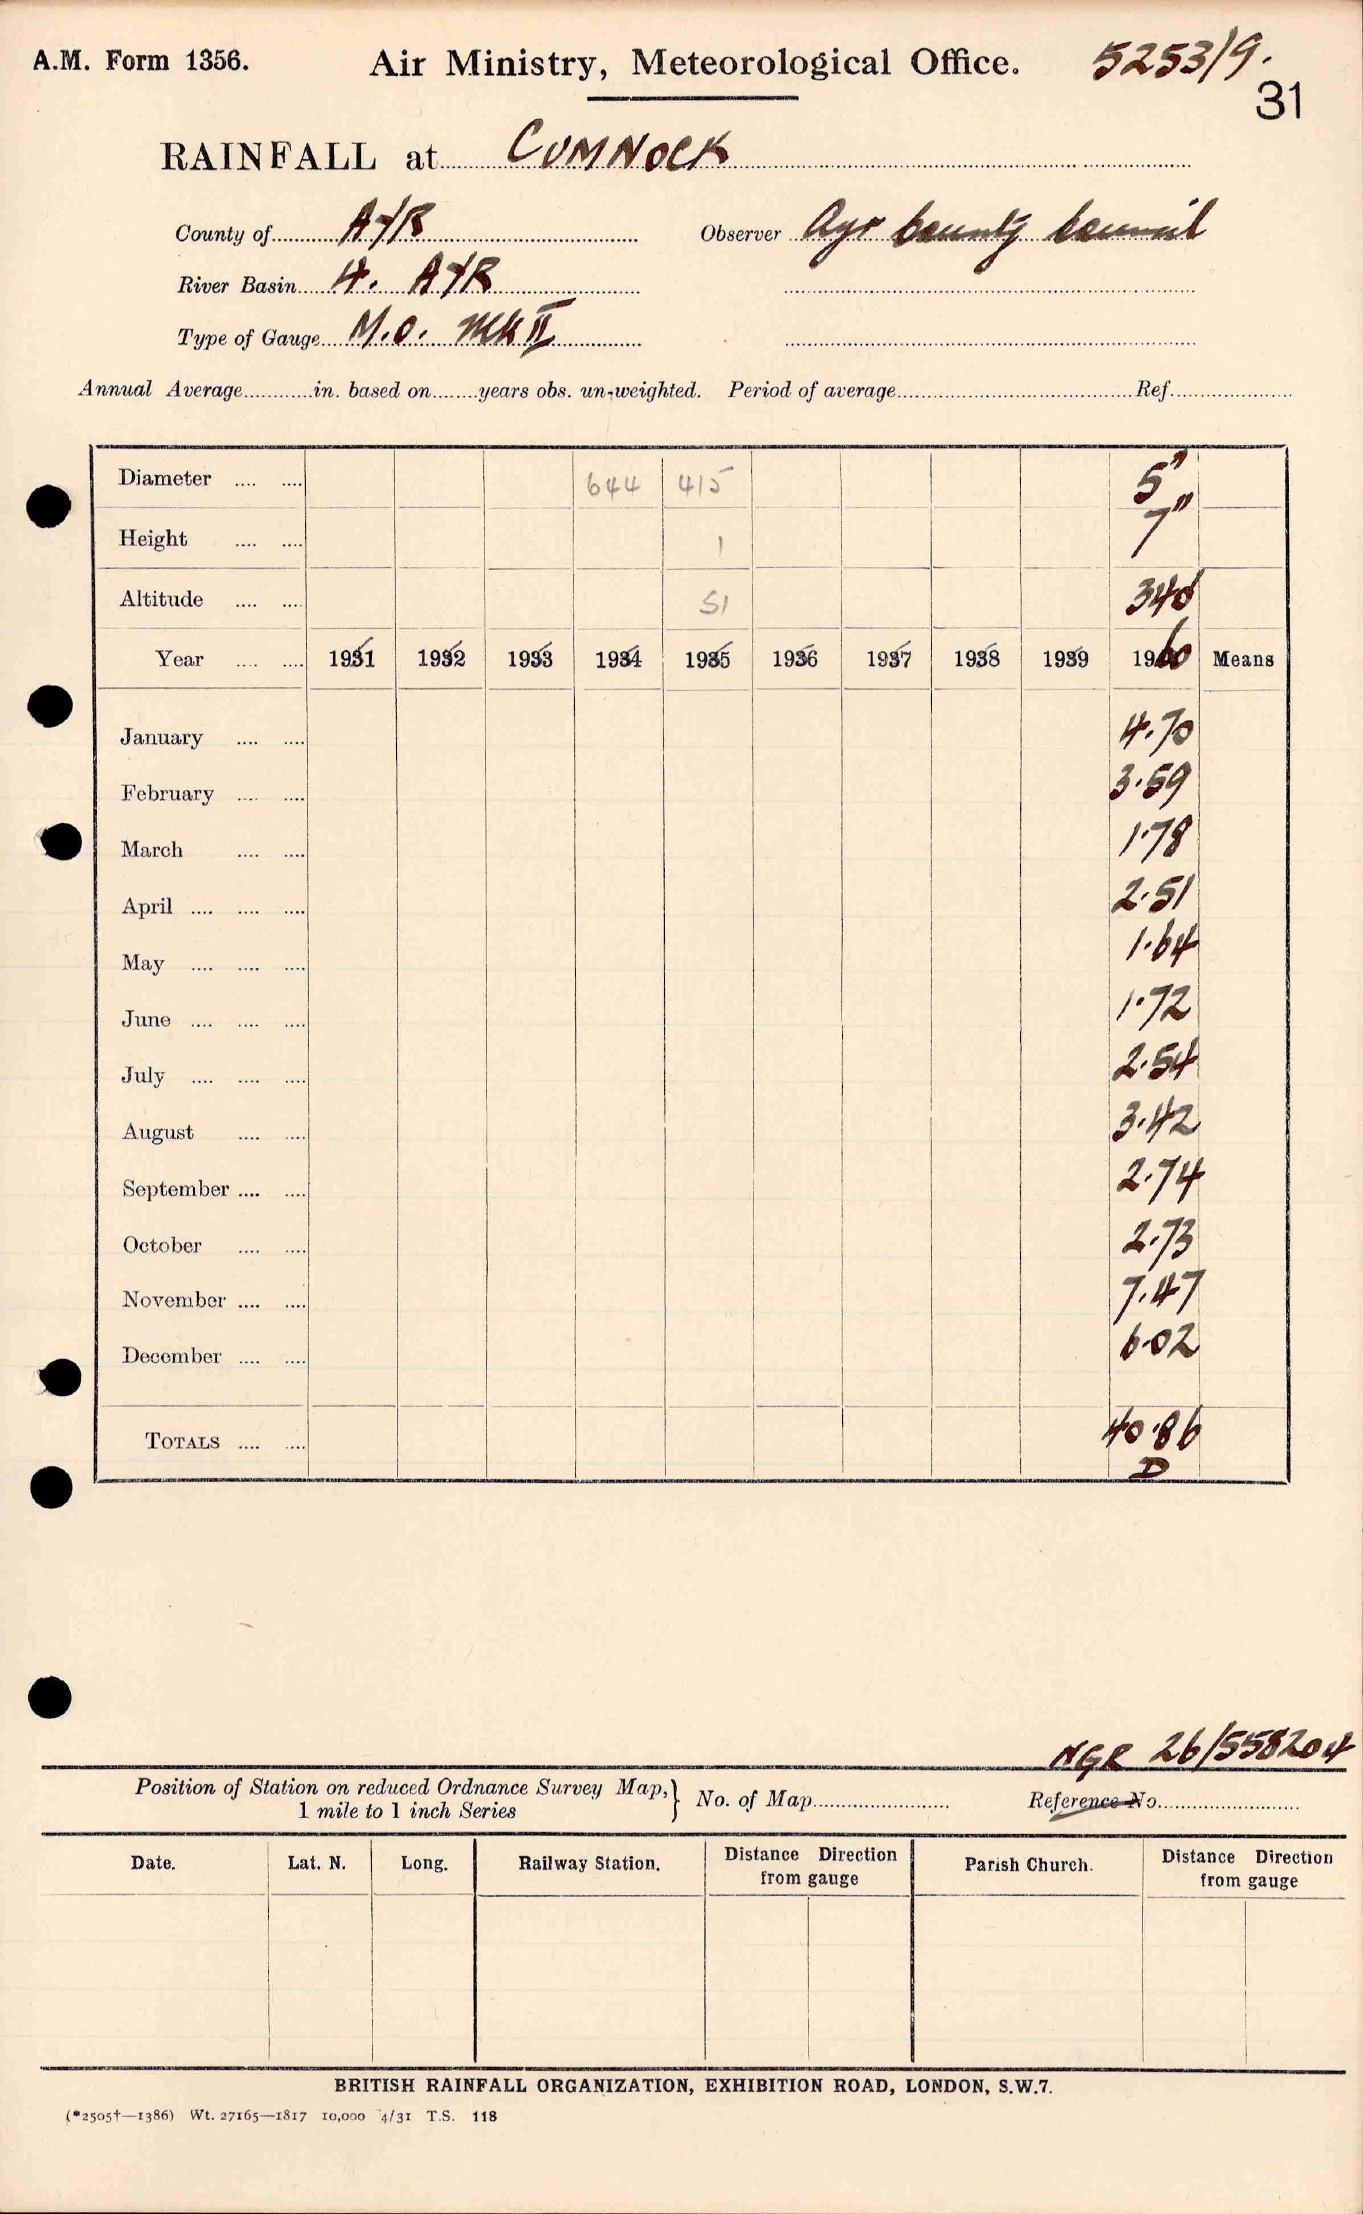 A.M. Form 1356. Air Ministry, Meteorological Office. 5253/9.
31
RAINFALL at CUMNOCK
County of AYR Observer Ayr County Council
River Basin 4. AYR
Type of Gauge M.O. MK II
Annual Average in. based on years obs. un-weighted. Period of average Ref.
Diameter 644 415 5"
Height 1 7"
Altitude 51 340
Year 1931 1932 1933 1934 1935 1936 1937 1938 1939 1960 Means
January 4.70
February 3.59
March 1.78
April 2.51
May 1.64
June 1.72
July 2.54
August 3.42
September 2.74
October 2.73
November 7.47
December 6.02
TOTALS 40.86
D
NGR 26/558204
Position of Station on reduced Ordnance Survey Map, } No. of Map Reference No.
1 mile to 1 inch Series
Date. Lat. N. Long. Railway Station. Distance Direction from gauge Parish Church. Distance Direction from gauge
BRITISH RAINFALL ORGANIZATION, EXHIBITION ROAD, LONDON, S.W.7.
(*2505†—1386) Wt. 27165—1817 10,000 4/31 T.S. 118